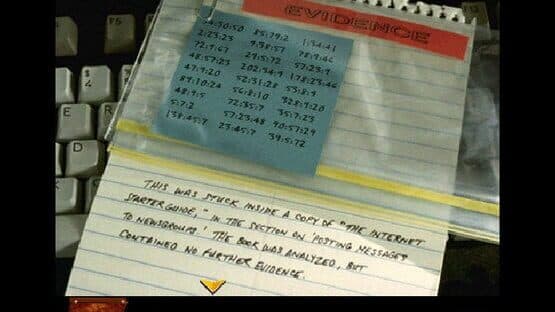 F5
EVIDENCE
85:79:2 1:34:41
2:23:25 9:38:57 78:9:46
72:9:67 29:5:72 57:23:9
48:57:23 202:34:9 178:23:46
47:9:20 52:31:28 53:8:9
89:10:24 56:8:10 328:9:20
48:9:5 72:35:7 35:7:23
5:7:2 57:23:48 90:57:29
138:45:7 23:45:7 39:5:72
$
4
E
R
D
THIS WAS STUCK INSIDE A COPY OF "THE INTERNET
STARTER GUIDE," IN THE SECTION ON 'POSTING MESSAGES
TO NEWSGROUPS.' THE BOOK WAS ANALYZED, BUT
CONTAINED NO FURTHER EVIDENCE.